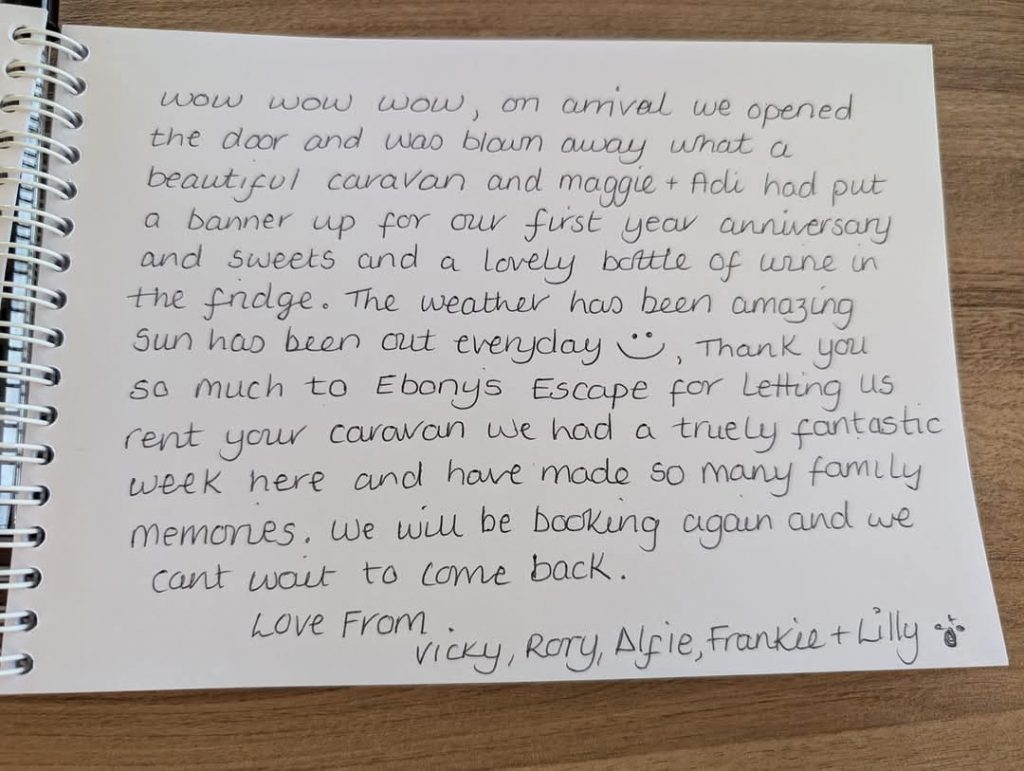 wow wow wow, on arrival we opened
the door and was blown away what a
beautiful caravan and maggie + Adi had put
a banner up for our first year anniversary
and sweets and a lovely bottle of wine in
the fridge. The weather has been amazing
Sun has been out everyday :), Thank you
so much to Ebony's Escape for Letting us
rent your caravan we had a truely fantastic
week here and have made so many family
memories. We will be booking again and we
cant wait to come back.
Love From.
Vicky, Rory, Alfie, Frankie + Lilly